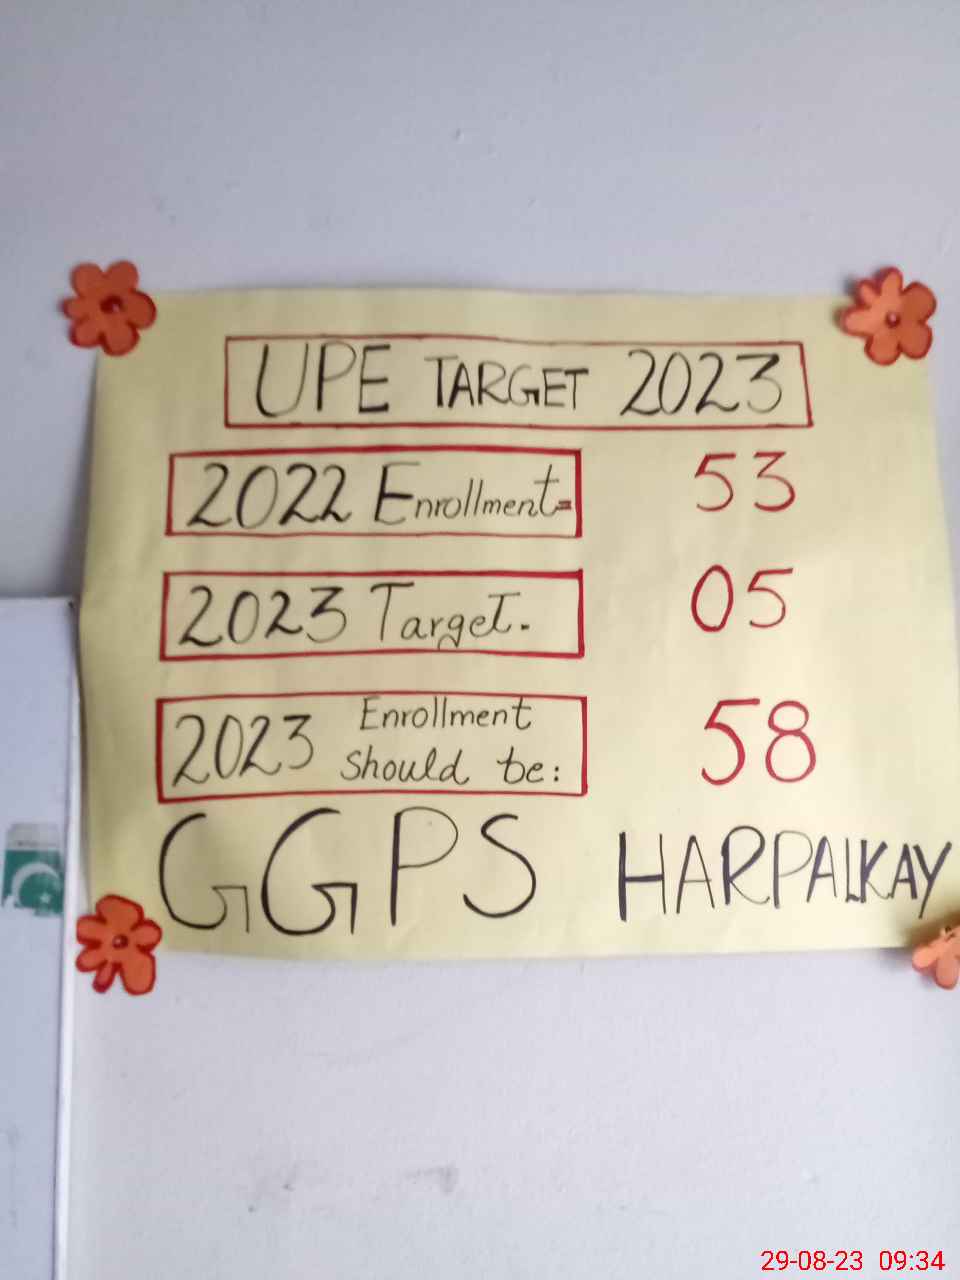 UPE TARGET 2023
2022 Enrollment= 53
2023 Target. 05
2023 Enrollment should be: 58
GGPS HARPALKAY
29-08-23 09:34